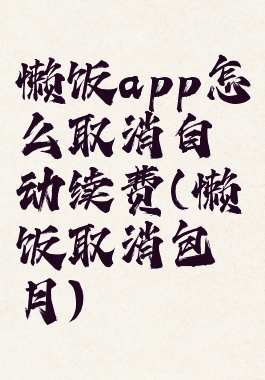 懒饭app怎
么取消自
动续费(懒
饭取消包
月)